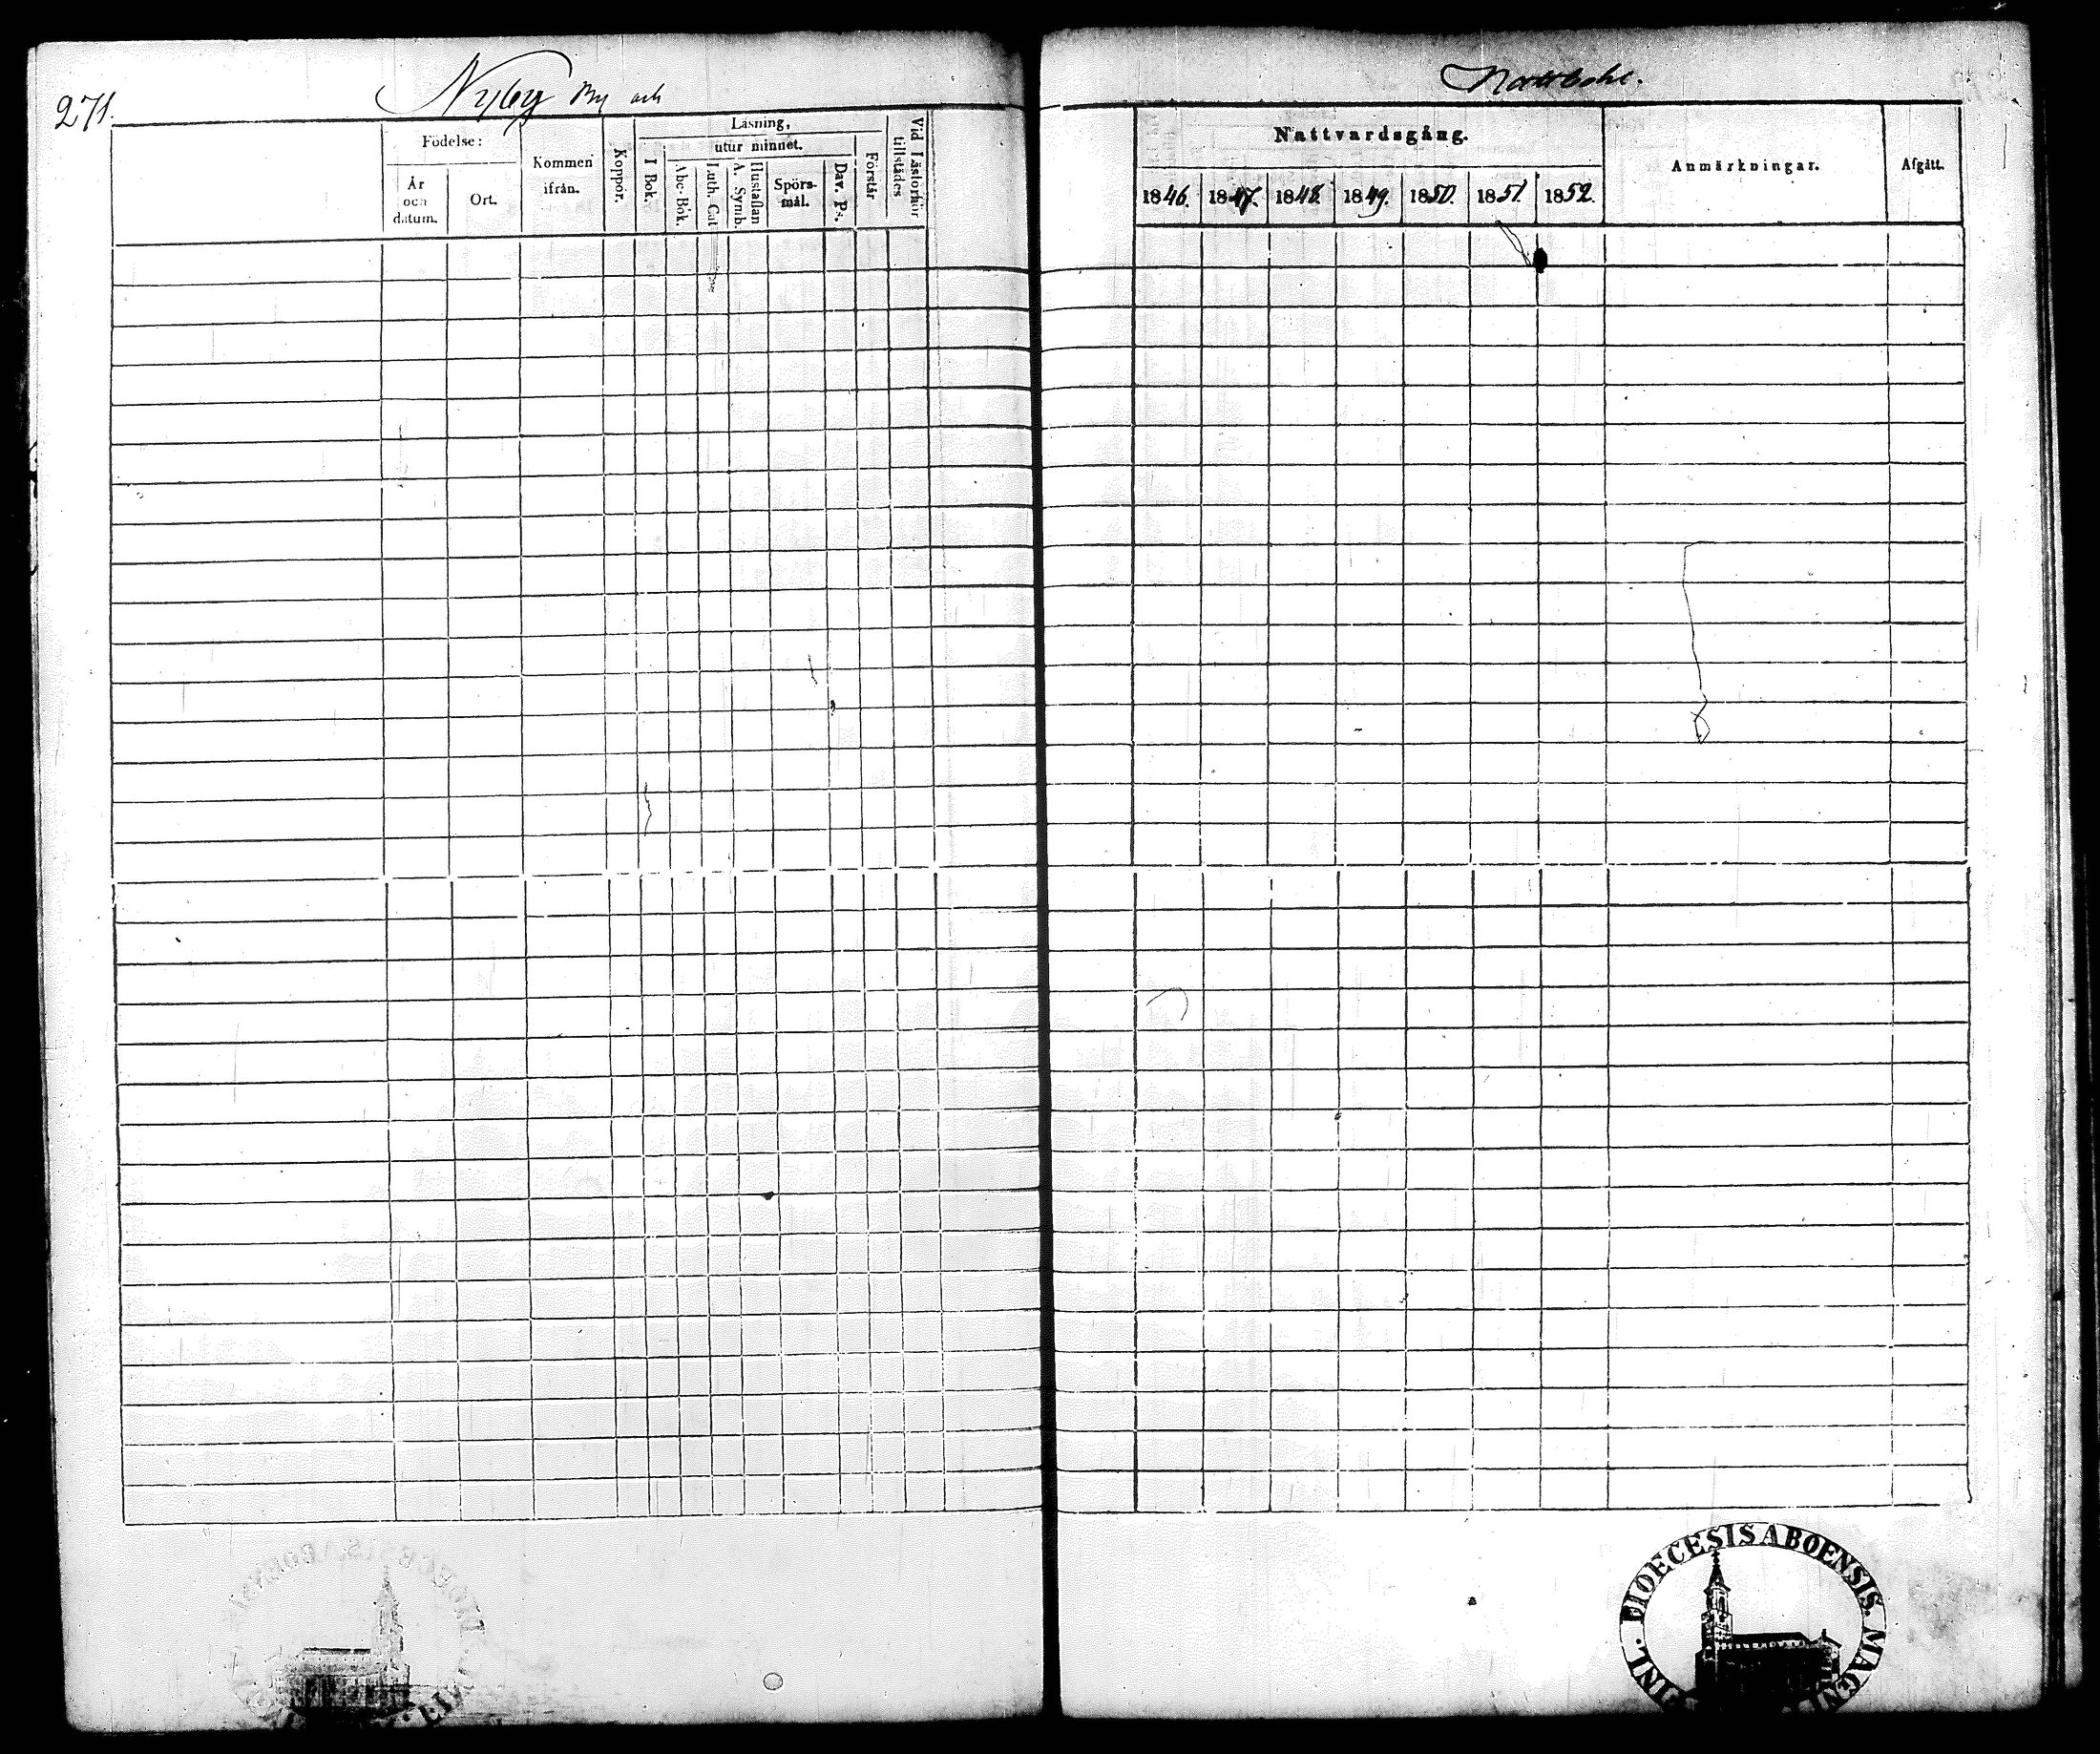 271.
Nyby By och
Födelse:
År och datum.
Ort.
Kommen ifrån.
Koppor.
Läsning,
utur minnet.
I Bok.
Abc-Bok.
Luth. Cat
Hustaflan A. Symb.
Spörs-mål.
Dav. Ps.
Förstår
Vid Läsförhör tillstädes
Nattvardsgång.
1846. 1847. 1848. 1849. 1850. 1851. 1852.
Anmärkningar.
Afgått.
DIOECESIS ABOENSIS. MAGNI